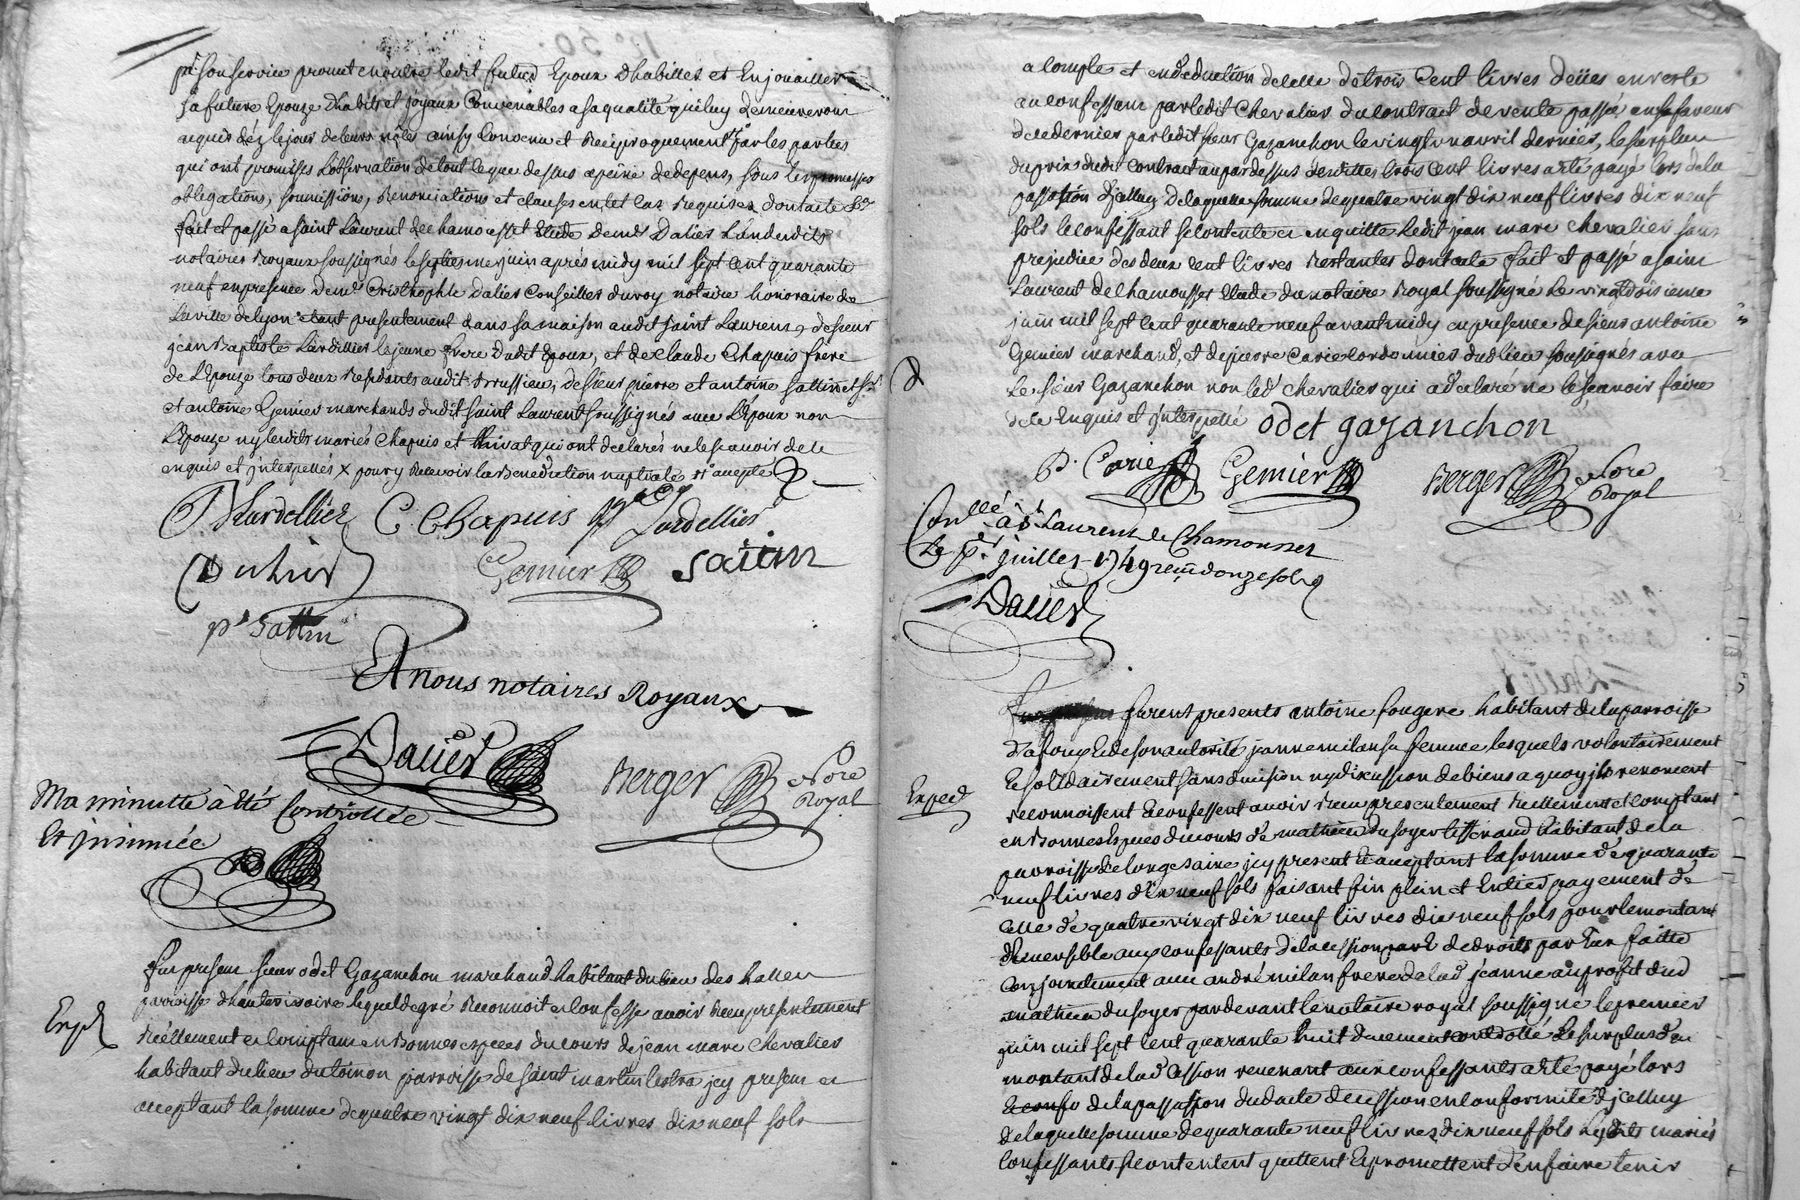 son service promet en outre ledit futur Epoux d'habiller et Enjouailler
sa future Epouze d'habits et joyaux Convenables a sa qualité qui luy demeureront
acquis déz le jour de leurs nôces ainsy Convenu et Réciproquement par les parties
qui ont promises L'observation de tout ce que dessus a peine de depens, sous les promesses
obligations, soumissions, Renonciations et clauses en tel cas Requises dont acte
fait et passé a saint Laurent de chamousset Etude de me Dalier L'un desdits
notaires Royaux soussignés le juin aprés midy mil sept cent quarante
neuf en presence de me Cristophle Dalier Conseiller du roy notaire honoraire de
La ville de Lyon etant presentement dans sa maison audit saint Laurent, de sieur
jean Baptiste Lardellier le jeune frere dudit Epoux, et de Claude Chapuis frere
de L'Epouze tous deux Residants audit Brussieu, de sieurs pierre et antoine sattin
et antoine Gemier marchands dudit saint Laurent soussignés avec L'Epoux non
L'Epouze ny lesdits mariés Chapuis et thivat qui ont declarés ne le scavoir de ce
enquis et jnterpellés x pour y Recevoir la Benediction nuptiale accepté
Lardellier C. Chapuis Lardellier
Gemier sattin
p. sattin
Et nous notaires Royaux
Dalier Berger Nore Royal
Ma minutte à été Controllée
Et jnsinuée
fut present sieur odet Gazanchon marchand habitant du lieu des halles
parroisse d'hauterivoire lequel de gré Reconnoit et confesse avoir Receu presentement
Exped
Réellement et Comptant en Bonnes especes du cours de jean marc Chevalier
habitant du lieu du toinon parroisse de saint martin lestra jcy present et
acceptant la somme de quatre vingt dix neuf livres dix neuf sols
a Compte et en deduction de celle de trois Cent livres deües en reste
au confessant par ledit Chevalier du Contract de vente passé en sa faveur
de ce dernier par ledit sieur Gazanchon le vingt avril dernier, le surplus
du prix dudit contract au par dessus desdittes trois Cent livres a eté payé lors de la
passation d'jcelluy de laquelle somme de quatre vingt dix neuf livres dix neuf
sols le confessant se contente et en quitte ledit jean marc Chevalier sans
prejudice des deux cent livres Restantes dont acte fait et passé a saint
Laurent de Chamousset Etude du notaire Royal soussigné le vingt troisieme
juin mil sept cent quarante neuf avant midy en presence de sieur antoine
Gemier marchand, et de pierre Carie Cordonnier dudit lieu soussignés avec
Le sieur Gazanchon non led Chevalier qui a declaré ne le scavoir faire
de ce Enquis et jnterpellé odet gazanchon
P. Carie Gemier Berger Nore Royal
Conllé à st Laurent de Chamousset
Le pr juillet 1749 douze sols
Dalier
furent presents antoine fougere habitant de la parroisse
d' et de son autorité janne milan sa femme lesquels volontairement
et solidairement sans division ny discussion de biens a quoy jls renoncent
Exped
reconnoissent et confessent avoir Receu presentement Réellement et comptant
en Bonnes Especes du cours de mathieu dusoyer tisserand habitant de la
parroisse de longesaine jcy present et acceptant la somme de quarante
neuf livres dix neuf sols faisant fin plein et Entier payement de
celle de quatre vingt dix neuf livres dix neuf sols pour le montant
aux confessants de la cession de droits par Eux faitte
conjointement avec andré milan frere de lad jeanne au profit dud
mathieu dusoyer par devant le notaire royal soussigné le premier
juin mil sept cent quarante huit duement controllé le surplus du
montant de lad cession revenant aux confessants a eté payé lors
de la passation dudit acte de cession en conformité d'jcelluy
de laquelle somme de quarante neuf livres dix neuf sols lesdits mariés
confessants se contentent quittent et promettent d'en faire tenir